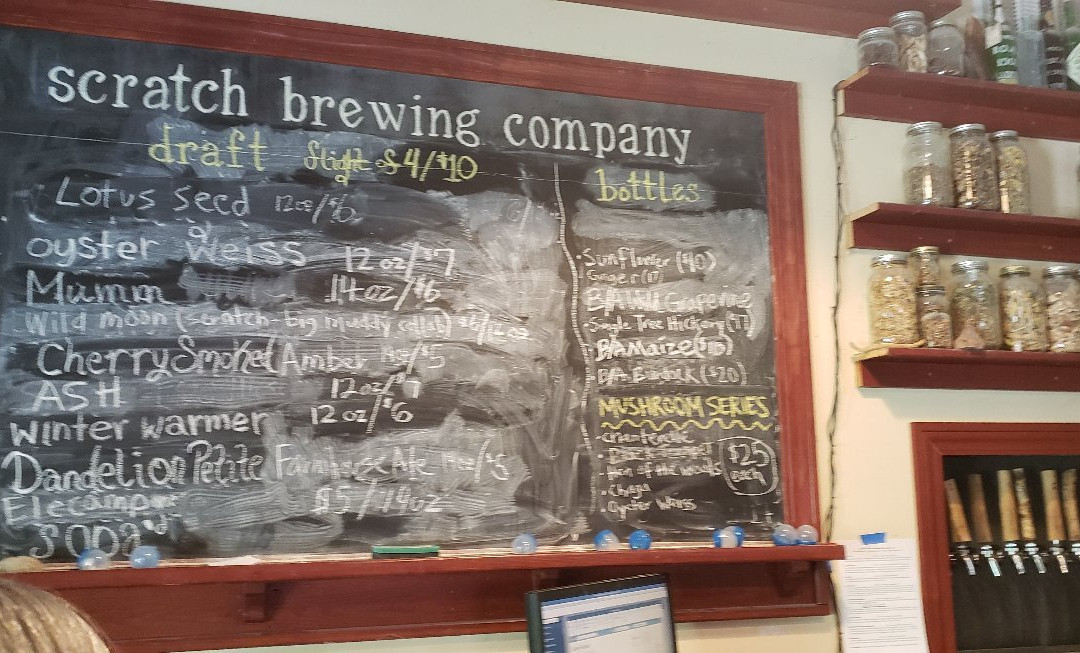 scratch brewing company
draft flight of 4/$10
Lotus seed 12oz/$6
oyster Weiss 12 oz/$7
Mumm 14oz/$6
Wild moon (scratch-big muddy collab) $6/12oz
Cherry Smoked Amber /$5
ASH 12oz/$7
Winter warmer 12 oz/$6
Dandelion Petite Farmhouse Ale /$5
Elecampane $5/14oz
SODA
bottles
• Sunflower (40)
Ginger (17)
B/A Wild Grapevine
• Single Tree Hickory
B/A Maize
B/A Burdock ($20)
MUSHROOM SERIES
• chanterelle
• Black trumpet
• Hen of the woods
• Chaga
• Oyster Weiss
$25 each